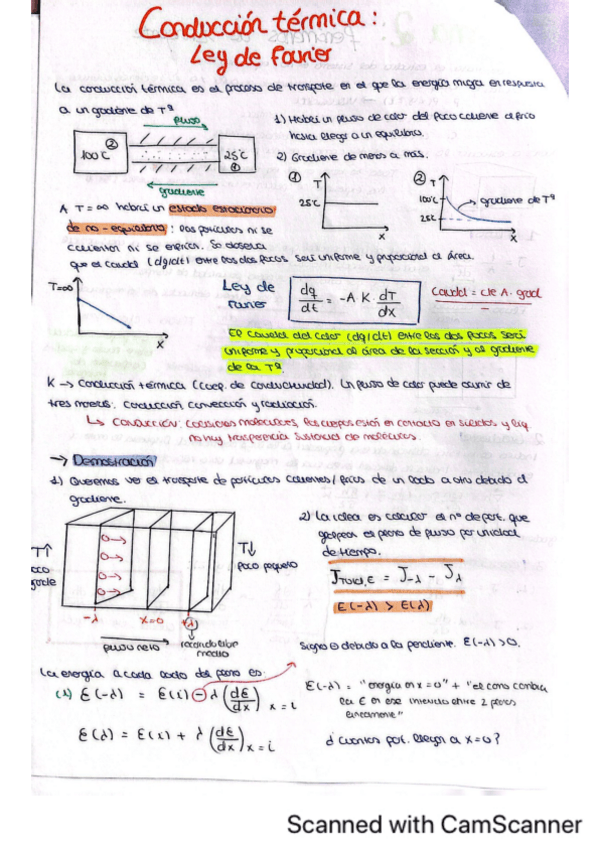 Conducción térmica:
Ley de Fourier
La conducción térmica es el proceso de transporte en el que la energía migra en respuesta
a un gradiente de Tª
flujo
100℃
②
25℃
①
gradiente
1) Habrá un flujo de calor del foco caliente al frío
hasta llegar a un equilibrio.
2) Gradiente de menos a más.
① T
25℃
x
② T
100℃
25℃
gradiente de Tª
x
A T = ∞ habrá un estado estacionario
de no-equilibrio: las partículas ni se
calientan ni se enfrían. Se observa
que el caudal (dq/dt) entre los dos focos será uniforme y proporcional al área.
T=∞
x
Ley de
Fourier
dq/dt = -A K · dT/dx
Caudal = cte A · grad
El caudal del calor (dq/dt) entre los dos focos será
uniforme y proporcional al área de la sección y al gradiente
de la Tª.
K → conducción térmica (coef. de conductividad). Un flujo de calor puede ocurrir de
tres maneras: conducción, convección y radiación.
↳ Conducción: colisiones moleculares, los cuerpos están en contacto en sólidos y líq
no hay trasferencia sustancial de moléculas.
→ Demostración
1) Queremos ver el transporte de partículas calientes/frías de un lado a otro debido al
gradiente.
T↑
foco
grande
T↓
foco pequeño
-λ
x=0
+λ
flujo neto
recorrido libre
medio
2) La idea es calcular el nº de part. que
golpean el plano de flujo por unidad
de tiempo.
J total,E = J-λ - Jλ
E(-λ) > E(λ)
Signo ⊖ debido a la pendiente. E(-λ)>0.
La energía a cada lado del plano es:
(1) E(-λ) = E(i) - λ (dE/dx) x=i
E(λ) = E(x) + λ (dE/dx) x=i
E(-λ) = "energía en x=0" + "el como cambia
la E en ese intervalo entre 2 planos
linealmente"
¿Cuántas part. llegan a x=0?
Scanned with CamScanner